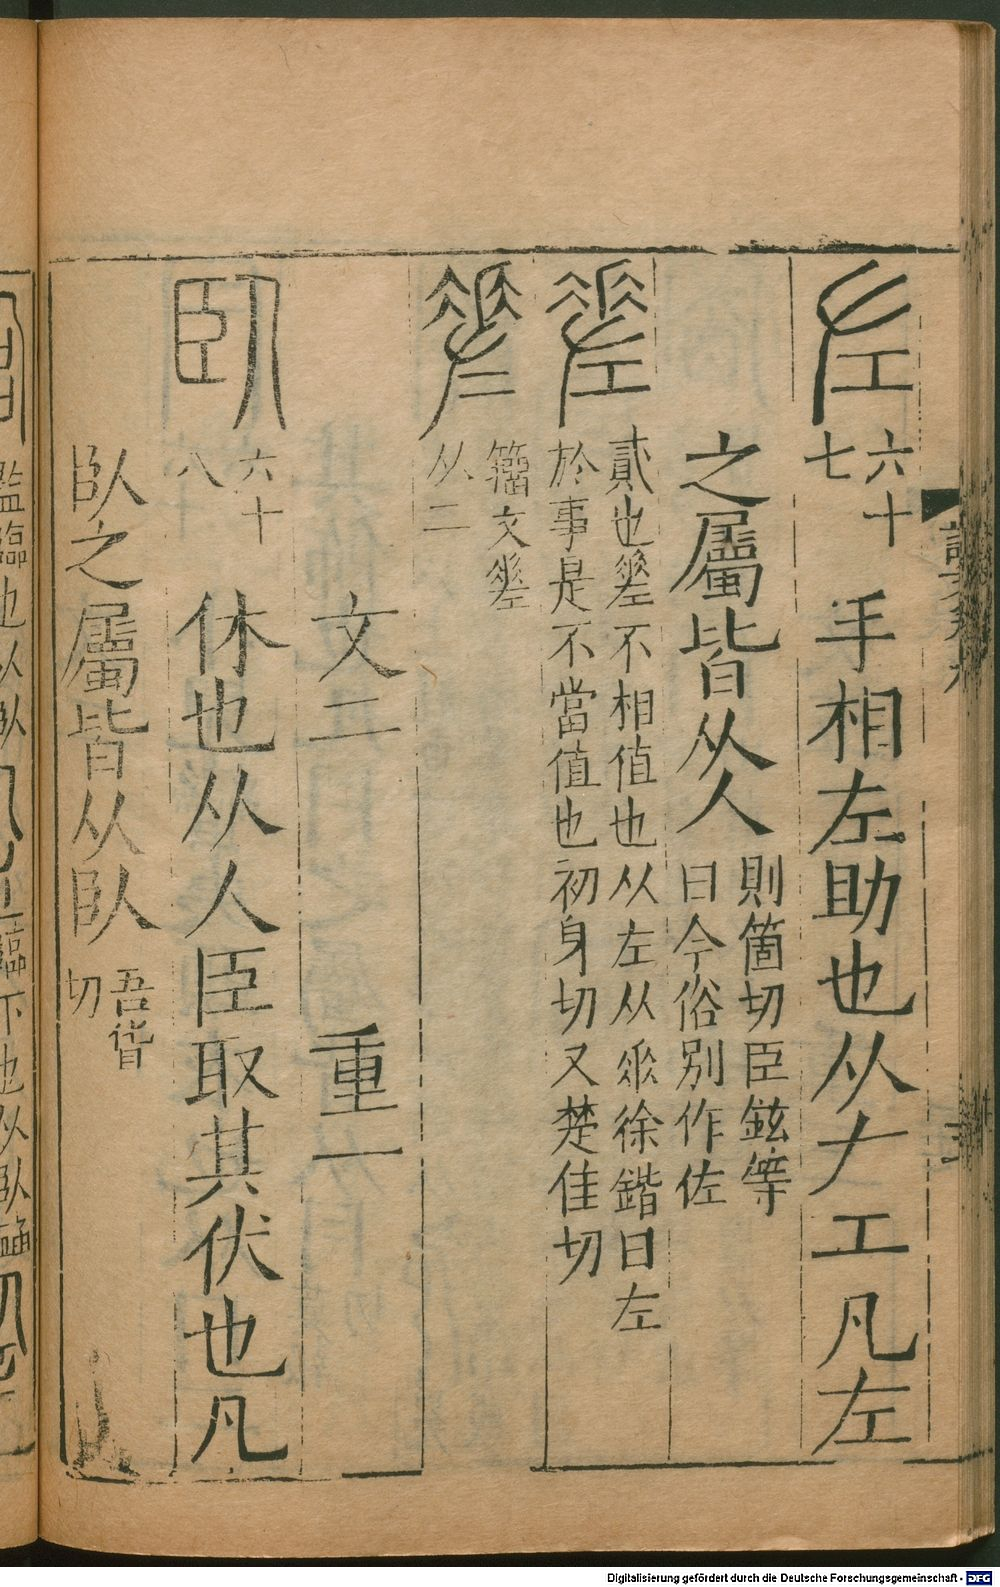 左 六十七 手相左助也从𠂇工凡左
之屬皆从人 則箇切臣鉉等曰今俗別作佐
𢀩 貳也𢀩不相值也从左从𠂹徐鍇曰左於事是不當值也初身切又楚佳切
籀文𢀩从二
文二 重一
臥 六十八 休也从人臣取其伏也凡
臥之屬皆从臥 吾眢切
Digitalisierung gefördert durch die Deutsche Forschungsgemeinschaft - DFG